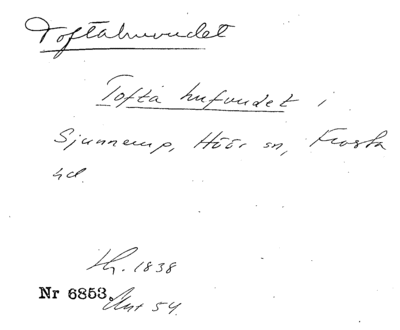 Toftahuvudet
Tofta hufvudet i
Sjunnerup, Höör sn, Frosta
hd.
1838
Nr 6853.
54.